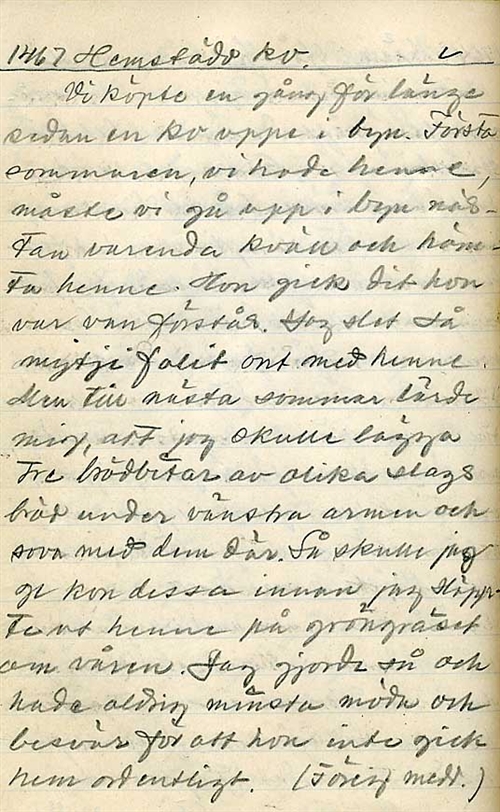 1467 Hemstädd ko.
Vi köpte en gång för länge
sedan en ko uppe i byn. Första
sommaren, vi hade henne,
måste vi gå upp i byn näs-
tan varenda kväll och häm-
ta henne. Hon gick dit hon
var van förstås. Jag slet så
mytji folit ont med henne.
Men till nästa sommar lärde
mig, att jag skulle lägga
tre brödbitar av olika slags
bröd under vänstra armen och
sova med dem där. Så skulle jag
ge kon dessa innan jag släpp-
te ut henne på gröngräset
om våren. Jag gjorde så och
hade aldrig minsta möda och
besvär för att hon inte gick
hem ordentligt. (Föreig medd.)